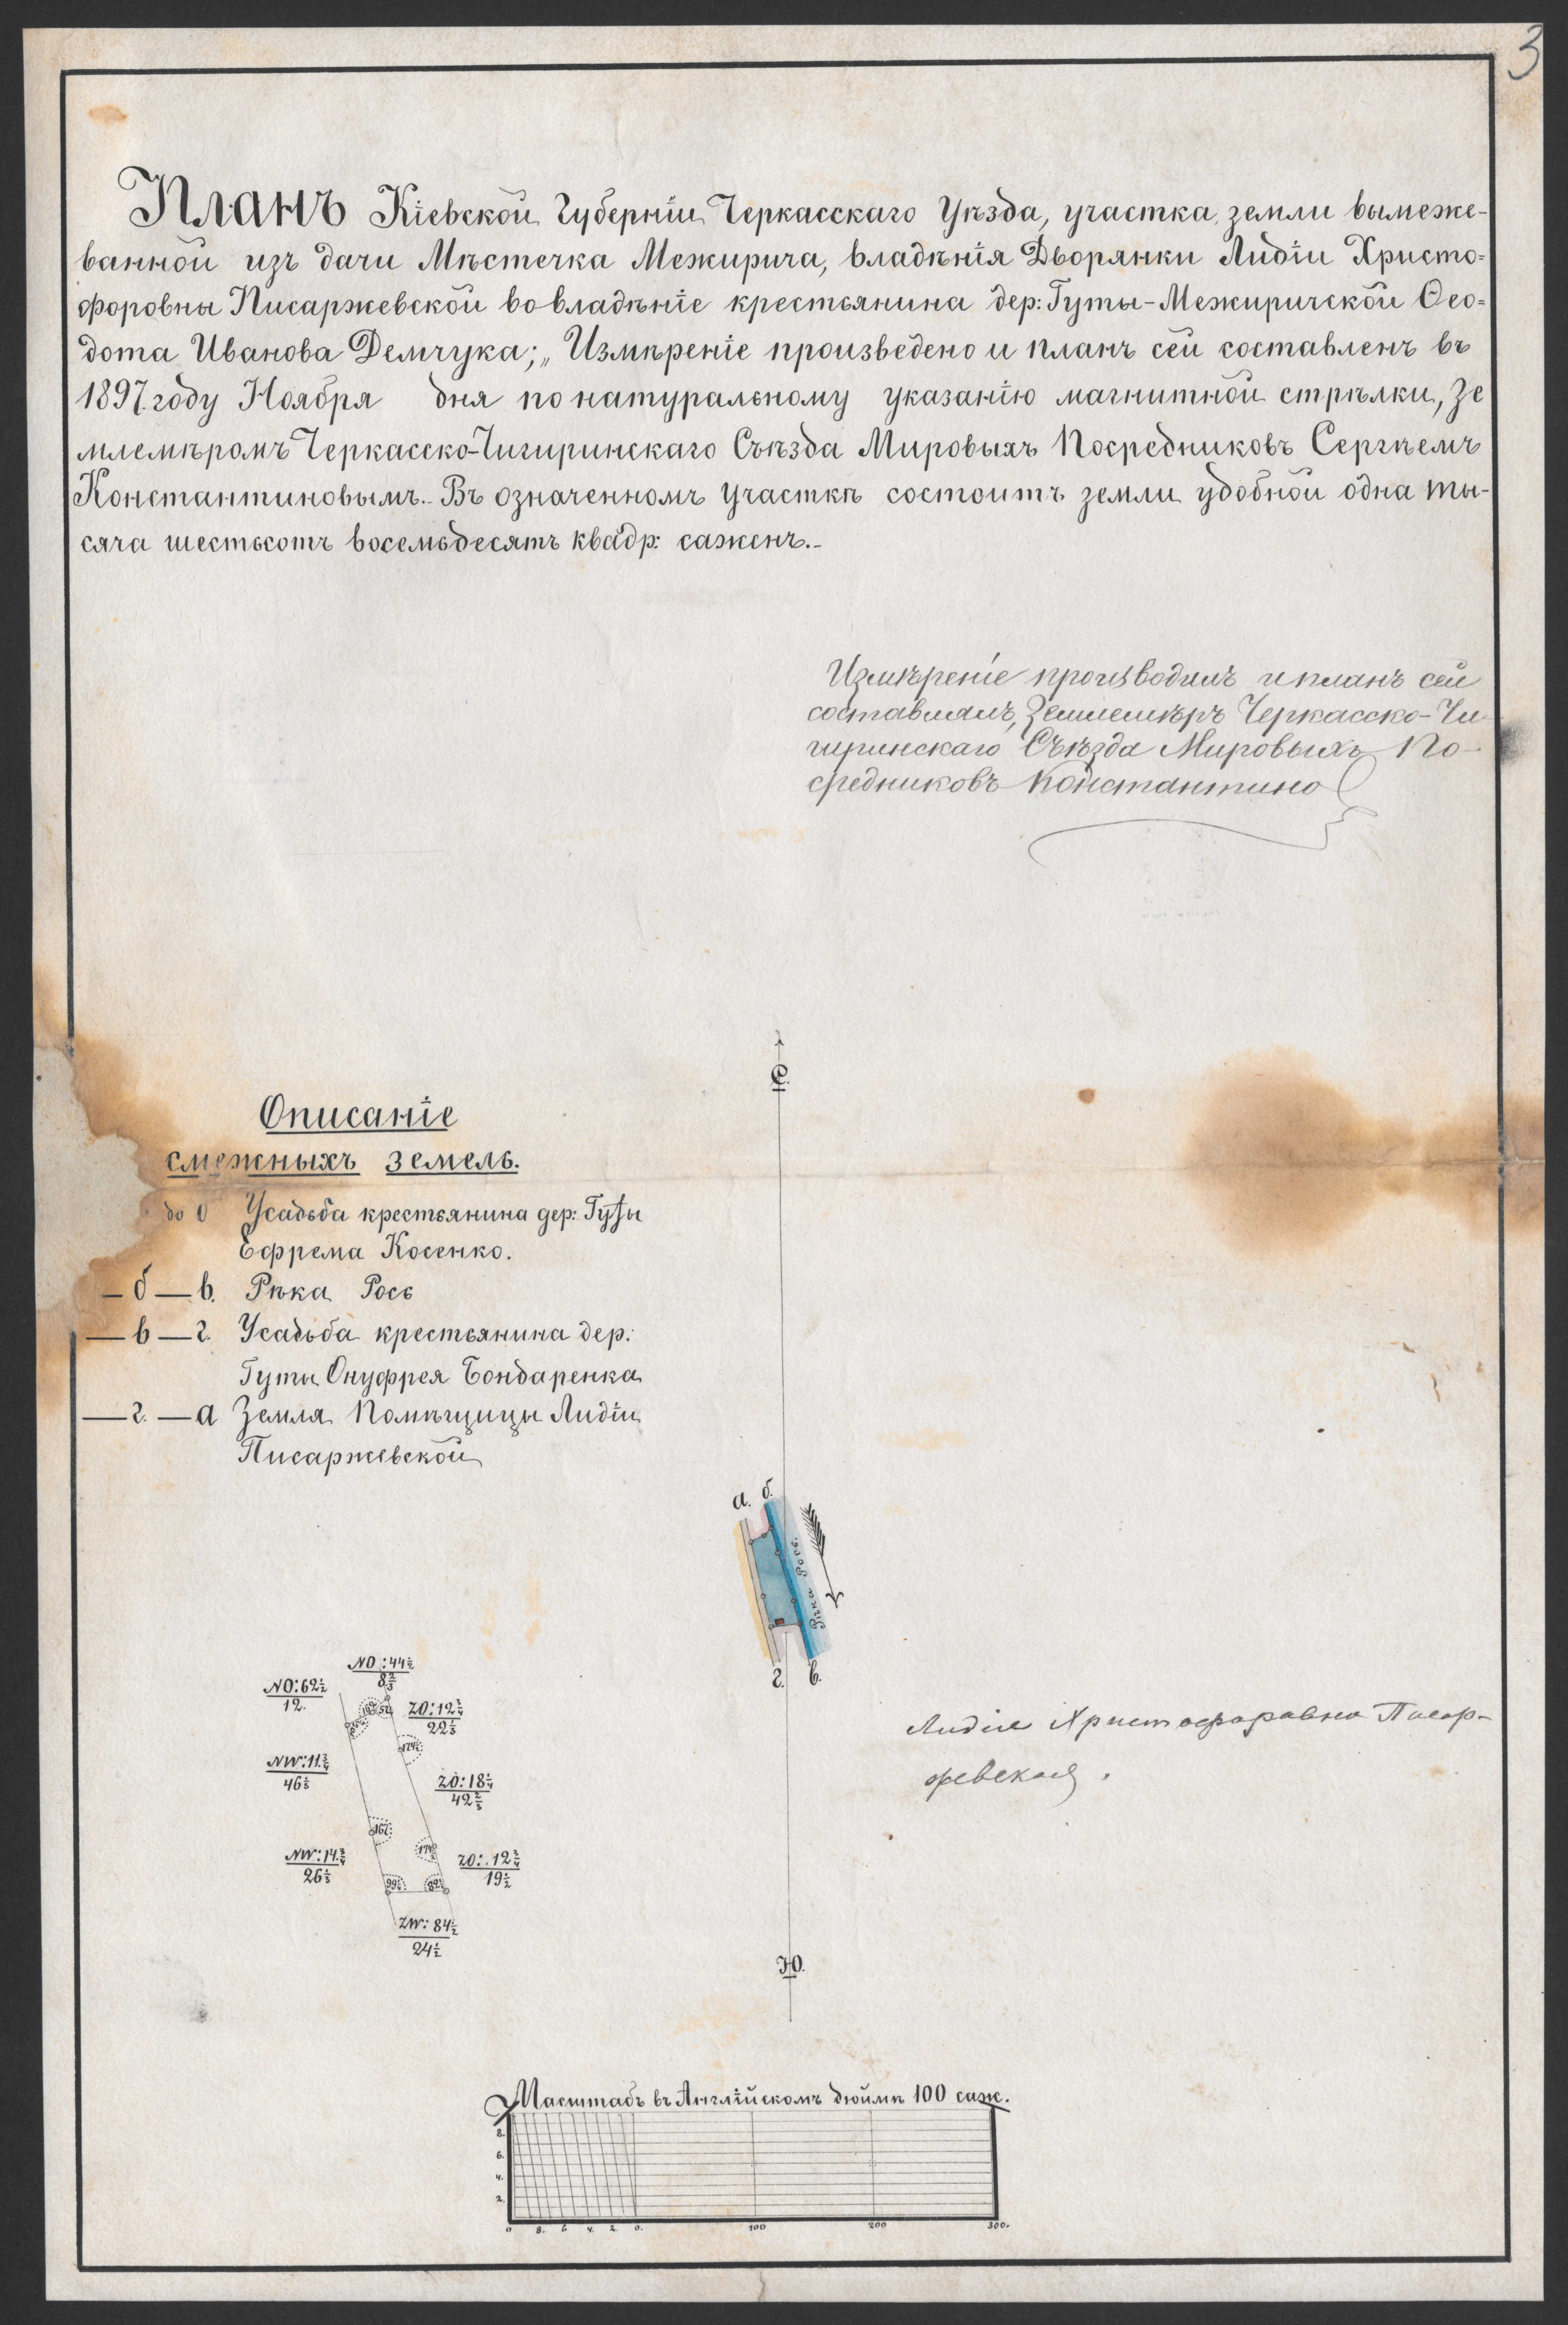 3
Планъ Кіевской Губерніи Черкасскаго Уѣзда, участка земли вымеже-
ванной изъ дачи Мѣстечка Межирича, владѣнія Дворянки Лидіи Христо-
форовны Писаржевской во владѣніе крестьянина дер: Гуты-Межиричской Ѳео-
дота Иванова Демчука; „Измѣреніе произведено и планъ сей составленъ въ
1897. году Ноября дня по натуральному указанію магнитной стрѣлки, Зе
млемѣромъ Черкасско-Чигиринскаго Съѣзда Мировыхъ Посредниковъ Сергѣемъ
Константиновымъ.- Въ означенномъ участкѣ состоитъ земли удобной одна ты-
сяча шестьсотъ восемьдесятъ квадр: саженъ.-
Измѣреніе производилъ и планъ сей
составлялъ, Землемѣръ Черкасско-Чи-
гиринскаго Съѣзда Мировыхъ По-
средниковъ Константино
С.
Описаніе
смежныхъ земель.
до Усадьба крестьянина дер: Гуты
Ефрема Косенко.
— б — в. Рѣка Рось
— в — г. Усадьба крестьянина дер:
Гуты Онуфрея Бондаренка
— г. — а Земля Помѣщицы Лидіи
Писаржевской
а. б.
Рѣка Рось.
г. в.
NO:44½
8⅔
NO:62½
12.
ZO:12¾
22⅓
NW:11¾
46⅓
ZO:18¼
42⅔
NW:14¾
26⅓
ZO:.12¾
19½
ZW:84½
24½
Лидія Христофоровна Писар-
жевская.
Ю.
Масштабъ въ Англійскомъ дюймѣ 100 саж.
8.
6.
4.
2.
0 8. 6 4. 2. 0. 100 200 300.